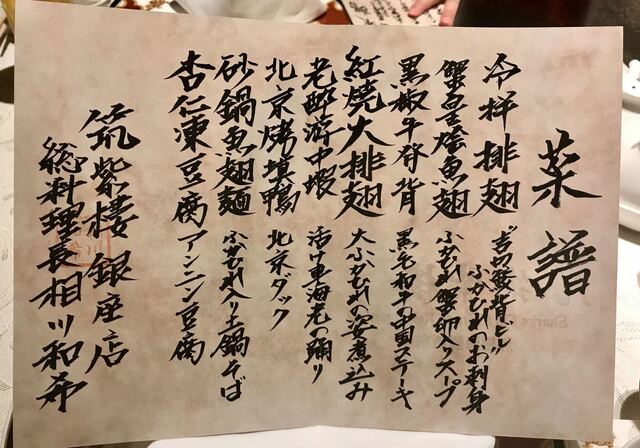 菜譜
冷拌排翅 "吉切鮫背ビレ"
ふかひれのお刺身
蟹皇燴魚翅 ふかひれ蟹卵入りスープ
黒椒牛脊背 黒毛和牛の中国ステーキ
紅燒大排翅 大ふかひれの姿煮込み
老酔游中蝦 活け車海老の踊り
北京烤填鴨 北京ダック
砂鍋魚翅麺 ふかひれ入り土鍋そば
杏仁凍豆腐 アンニン豆腐
筑紫樓 銀座店
総料理長 相川和希